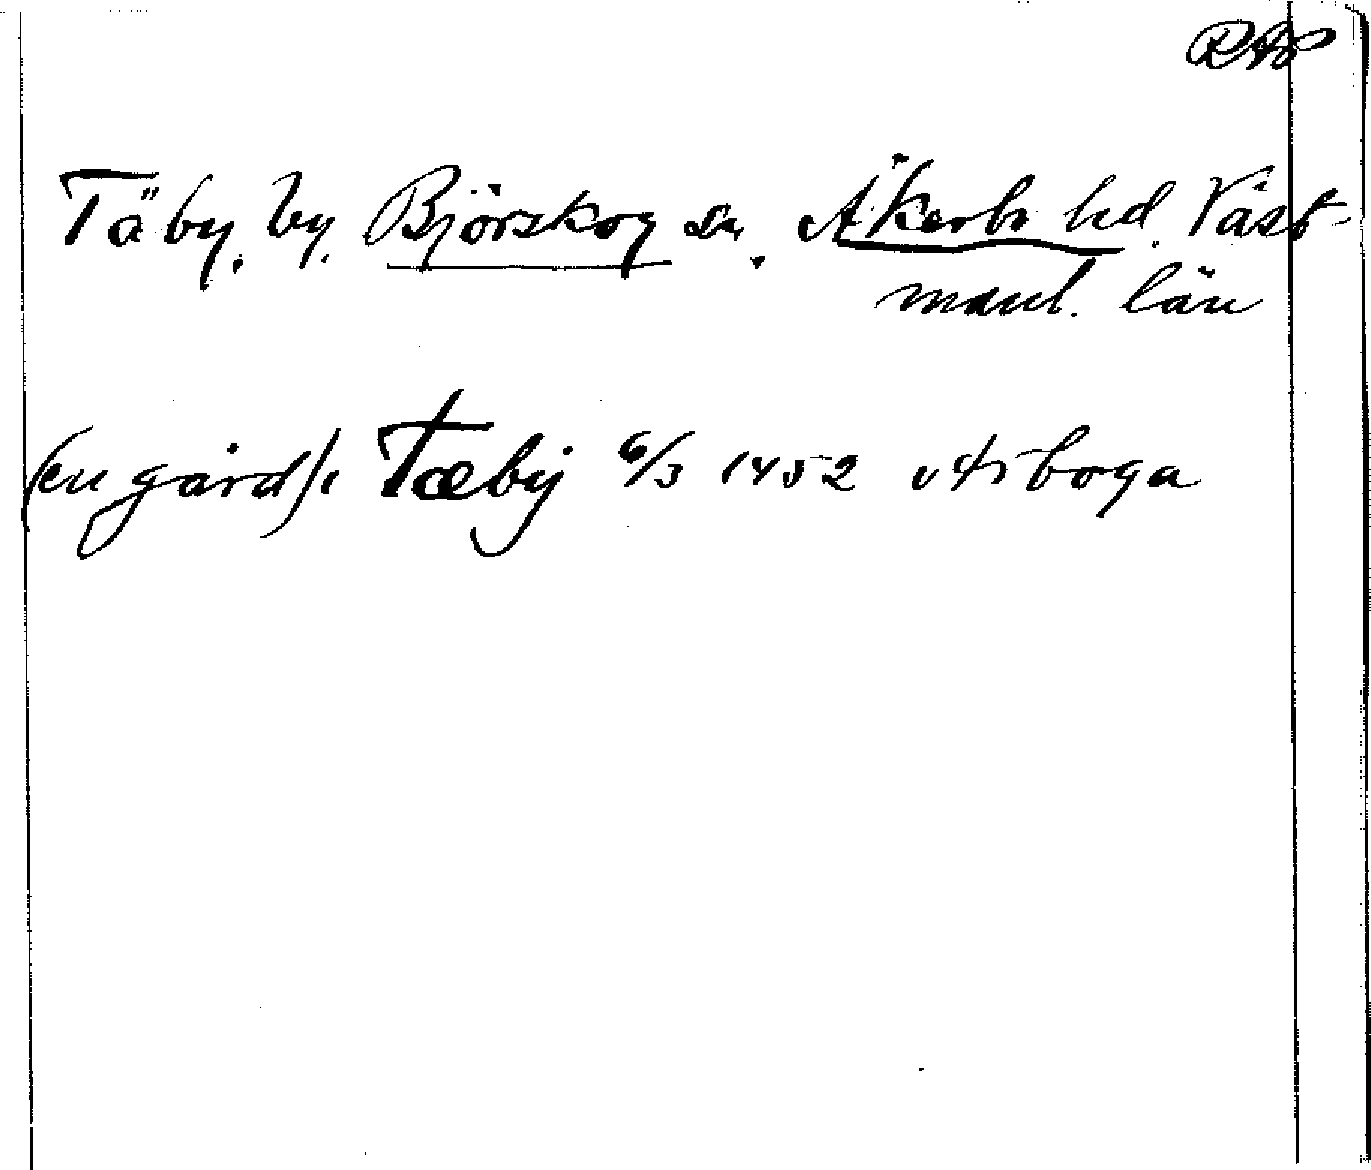 RAP
Täby, by, Björskog sn, Åkerbo hd, Väst-
manl. län
(en gård) i Tæbÿ 6/3 1452 Arboga